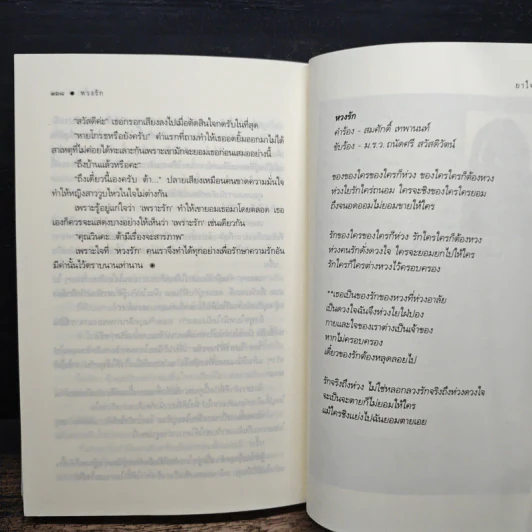 ๑๖๘ ● หวงรัก
"สวัสดีค่ะ" เธอกรอกเสียงลงไปเมื่อตัดสินใจกดรับในที่สุด
"หายโกรธหรือยังครับ" คำแรกที่ถามทำให้เธออดยิ้มออกมาไม่ได้
สาเหตุที่ไม่ค่อยได้ทะเลาะกันเพราะเขามักจะยอมเธอก่อนเสมออย่างนี้
"ถึงบ้านแล้วหรือคะ"
"ถึงเดี๋ยวนี้เองครับ ต้า..." ปลายเสียงเหมือนคนขาดความมั่นใจ
ทำให้หญิงสาววูบไหวในใจไม่ต่างกัน
เพราะรู้อยู่แก่ใจว่า 'เพราะรัก' ทำให้เขายอมเธอมาโดยตลอด เธอ
เองก็ควรจะแสดงบางอย่างให้เห็นว่า 'เพราะรัก' เช่นเดียวกัน
"คุณวินคะ...ต้ามีเรื่องจะสารภาพ"
เพราะใจที่ 'หวงรัก' คนเราจึงทำได้ทุกอย่างเพื่อรักษาความรักอัน
มีค่านั้นไว้ตราบนานเท่านาน ●
ยาใจ
หวงรัก
คำร้อง - สมศักดิ์ เทพานนท์
ขับร้อง - ม.ร.ว. ถนัดศรี สวัสดิวัตน์
ของของใครของใครก็ห่วง ของใครใครก็ต้องหวง
ห่วงใยรักใคร่ถนอม ใครจะชิงของใครใครยอม
ถึงจนอดออมไม่ยอมขายให้ใคร
รักของใครของใครก็ห่วง รักใครใครก็ต้องหวง
ห่วงคนรักดั่งดวงใจ ใครจะยอมยกไปให้ใคร
รักใครก็ใครต่างหวงไว้ครอบครอง
**เธอเป็นของรักของหวงที่ห่วงอาลัย
เป็นดวงใจฉันจึงห่วงใยใฝ่ปอง
กายและใจของเราต่างเป็นเจ้าของ
หากไม่ครอบครอง
เดี๋ยวของรักต้องหลุดลอยไป
รักจริงถึงห่วง ไม่ใช่หลอกลวงรักจริงถึงห่วงดวงใจ
จะเป็นจะตายก็ไม่ยอมให้ใคร
แม้ใครชิงแย่งไปฉันยอมตายเอย